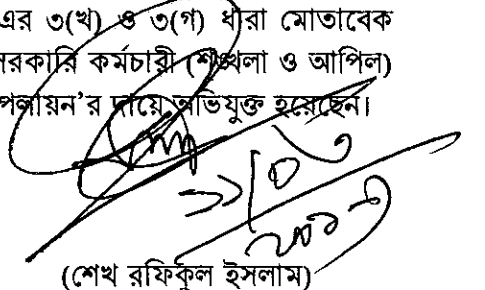 এর ৩(খ) ও ৩(গ) ধারা মোতাবেক
সরকারি কর্মচারী (শৃঙ্খলা ও আপিল)
পলায়ন'র দায়ে অভিযুক্ত হয়েছেন।
(শেখ রফিকুল ইসলাম)